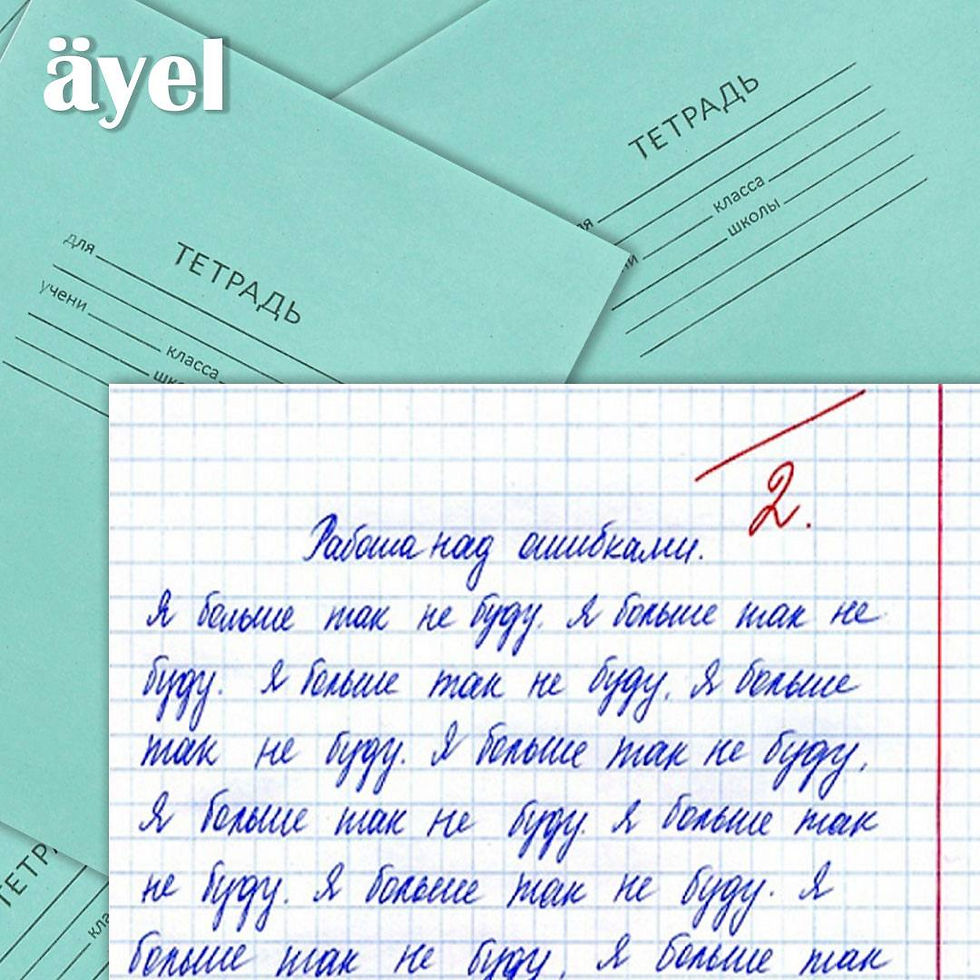 äyel
ТЕТРАДЬ
класса
школы
ТЕТРАДЬ
для
учени
класса
2.
Работа над ошибками.
Я больше так не буду. Я больше так не
буду. Я больше так не буду. Я больше
так не буду. Я больше так не буду.
Я больше так не буду. Я больше так
не буду. Я больше так не буду. Я
больше так не буду. Я больше так